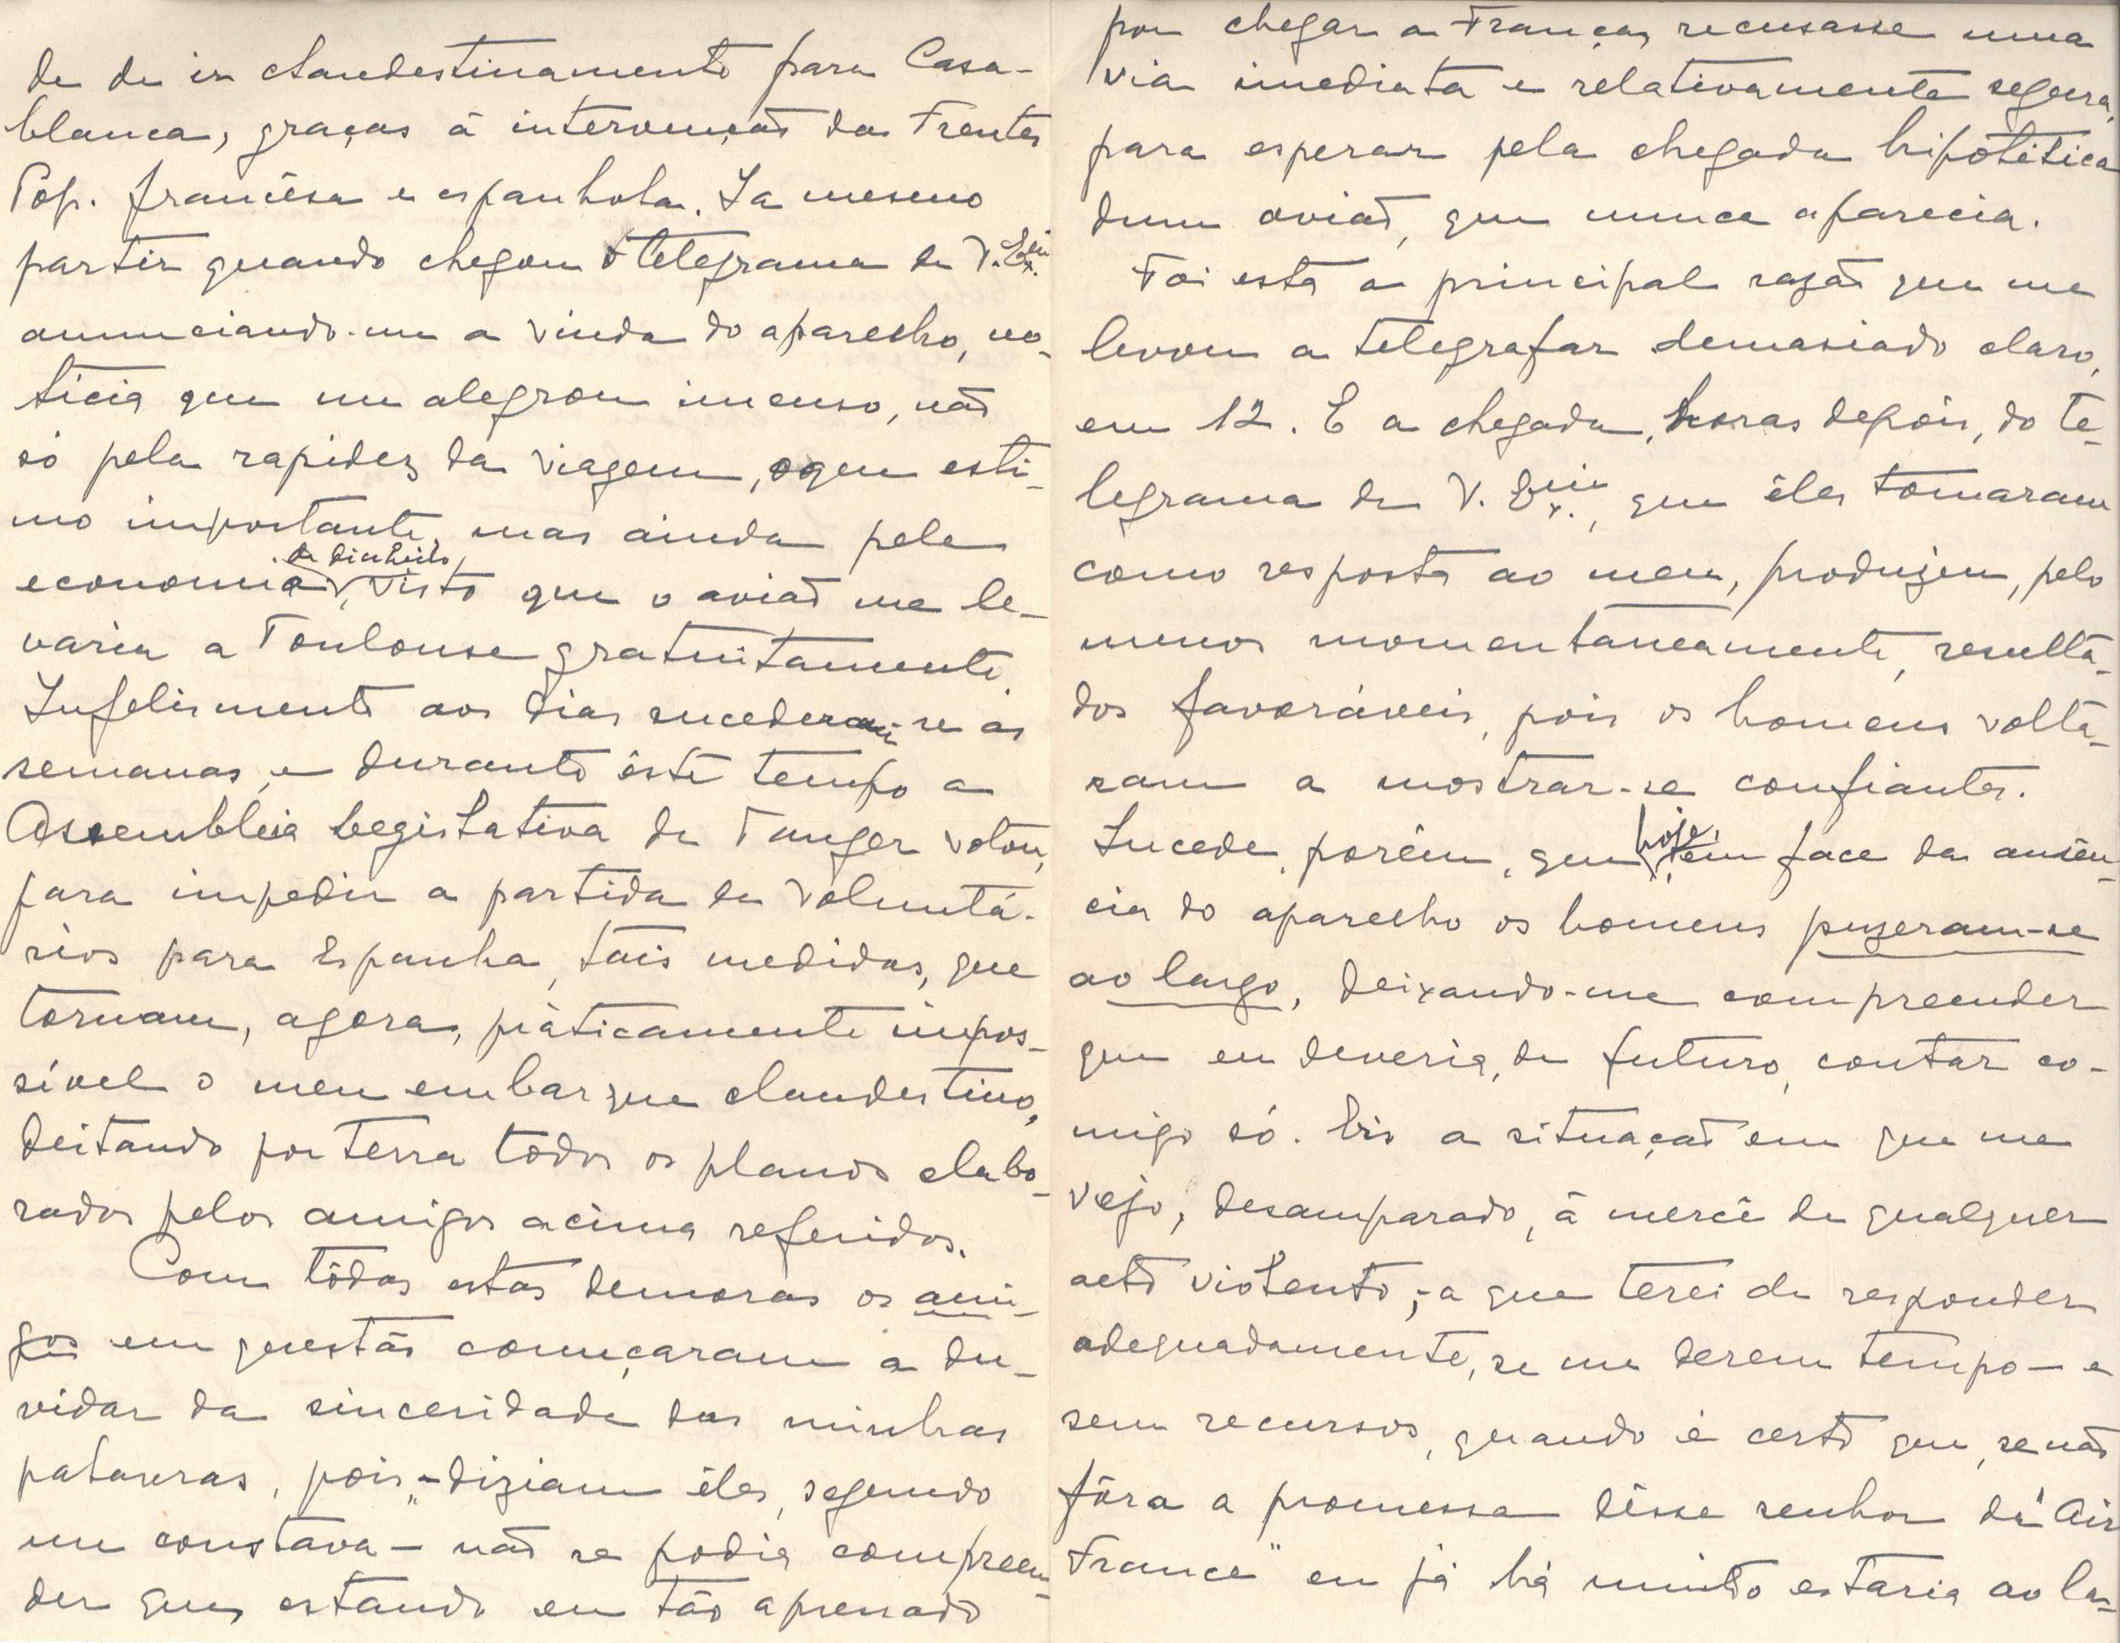 de de ir clandestinamente para Casa-
blanca, graças á intervenção das Frentes
Pop. francêsa e espanhola. Ia mesmo
partir quando chegou o telegrama de V. Ex.
anunciando-me a vinda do aparelho, no-
ticia que me alegrou imenso, não
só pela rapidez da viagem, o que esti-
mo importante, mas ainda pela
economia de dinheiro, visto que o avião me le-
varia a Toulouse gratuitamente.
Infelismente aos dias sucederam-se as
semanas, e durante êste tempo a
Assembleia Legislativa de Tanger votou,
para impedir a partida de voluntá-
rios para Espanha, tais medidas, que
tornam, agora, pràticamente impos-
sível o meu embarque clandestino,
deitando por terra todos os planos elabo-
rados pelos amigos acima referidos.
Com tôdas estas demoras os ami-
gos em questão começaram a du-
vidar da sinceridade das minhas
palavras, pois, - diziam êles, segundo
me constava - não se podia compreen-
der que, estando eu tão apressado
por chegar a França, recusasse uma
via imediata e relativamente segura,
para esperar pela chegada hipotética
dum avião, que nunca aparecia.
Foi esta a principal razão que me
levou a telegrafar demasiado claro,
em 12. E a chegada, horas depois, do te-
legrama de V. Ex., que êles tomaram
como resposta ao meu, produziu, pelo
menos momentaneamente, resulta-
dos favoráveis, pois os homens volta-
ram a mostrar-se confiantes.
Sucede, porém, que hoje, em face da ausên-
cia do aparelho os homens puzeram-se
ao largo, deixando-me compreender
que eu deveria, de futuro, contar co-
migo só. Eis a situação em que me
vejo, desamparado, á mercê de qualquer
acto violento, - a que terei de responder
adequadamente, se me derem tempo - e
sem recursos, quando é certo que, se não
fôra a promessa dêsse senhor da "Air
France" eu já há muito estaria ao la-